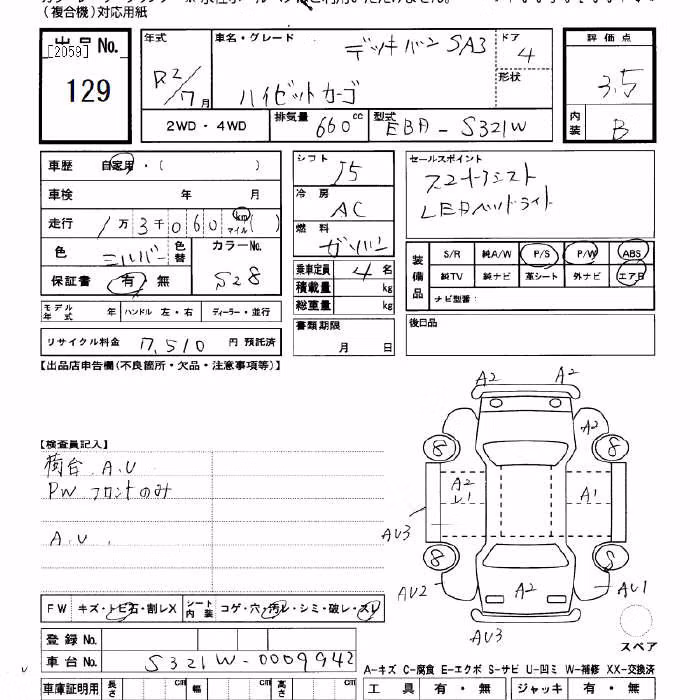 (複合機)対応用紙
出品No.
[2059]
129
年式 R2/7月
車名・グレード デッキバン SA3
ハイゼットカーゴ
ドア 4
形状
評価点 3.5
内装 B
2WD・4WD
排気量 660cc
型式 EBA-S321W
車歴 自家用・( )
車検 年 月
走行 1万3千060 km マイル( )
色 シルバー 色替
カラーNo. S28
保証書 有 無
モデル年式 年 ハンドル 左・右 ディーラー・並行
リサイクル料金 7,510 円 預託済
シフト I5
冷房 AC
燃料 ガソリン
乗車定員 4名
積載量 kg
総重量 kg
書類期限
月 日
セールスポイント
スマートアシスト
LEDヘッドライト
装備品
S/R 純A/W P/S P/W ABS
純TV 純ナビ 革シート 外ナビ エアB
ナビ型番:
後日品
【出品店申告欄(不良箇所・欠品・注意事項等)】
【検査員記入】
荷台 A.U
PW フロントのみ
A.U.
A2 A2
A2
8 8
A2
A1
AU3
8 S
AU2 A2 AU1
AU3
スペア
FW キズ・トビ石・割レX
シート内装 コゲ・穴・汚レ・シミ・破レ・スレ
登録No.
車台No. S321W-0009942
A-キズ C-腐食 E-エクボ S-サビ U-凹ミ W-補修 XX-交換済
車庫証明用 長さ cm 幅 cm 高さ cm
工具 有・無 ジャッキ 有・無